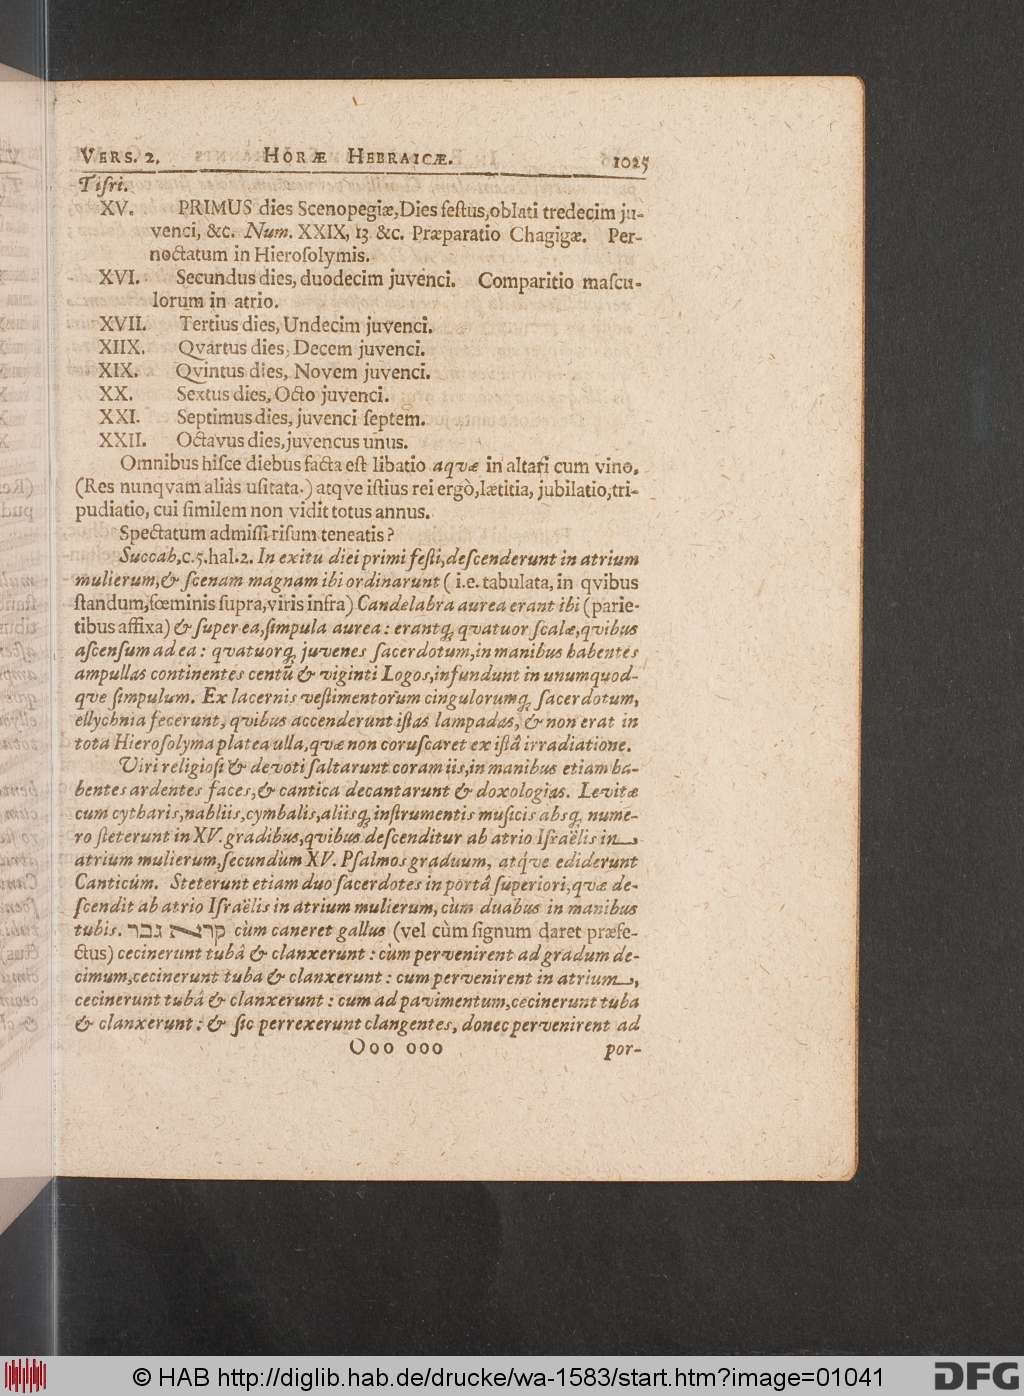 VERS. 2. HORÆ HEBRAICÆ. 1025
Tiſri.
XV. PRIMUS dies Scenopegiæ, Dies feſtus, oblati tredecim ju-
venci, &c. Num. XXIX, 13 &c. Præparatio Chagigæ. Per-
noctatum in Hieroſolymis.
XVI. Secundus dies, duodecim juvenci. Comparitio maſcu-
lorum in atrio.
XVII. Tertius dies, Undecim juvenci.
XIIX. Qvartus dies, Decem juvenci.
XIX. Qvintus dies, Novem juvenci.
XX. Sextus dies, Octo juvenci.
XXI. Septimus dies, juvenci ſeptem.
XXII. Octavus dies, juvencus unus.
Omnibus hiſce diebus facta eſt libatio aqvæ in altari cum vino,
(Res nunqvam aliàs uſitata.) atqve iſtius rei ergò, lætitia, jubilatio, tri-
pudiatio, cui ſimilem non vidit totus annus.
Spectatum admiſſi riſum teneatis?
Succah, c. 5. hal. 2. In exitu diei primi feſti, deſcenderunt in atrium
mulierum, & ſcenam magnam ibi ordinarunt ( i. e. tabulata, in qvibus
ſtandum, fœminis ſupra, viris infra) Candelabra aurea erant ibi (parie-
tibus affixa) & ſuper ea, ſimpula aurea: erantq; qvatuor ſcalæ, qvibus
aſcenſum ad ea: qvatuorq; juvenes ſacerdotum, in manibus habentes
ampullas continentes centũ & viginti Logos, infundunt in unumquod-
qve ſimpulum. Ex lacernis veſtimentorum cingulorumq; ſacerdotum,
ellychnia fecerunt, qvibus accenderunt iſtas lampadas, & non erat in
tota Hieroſolyma platea ulla, qvæ non coruſcaret ex iſtâ irradiatione.
Viri religioſi & devoti ſaltarunt coram iis, in manibus etiam ha-
bentes ardentes faces, & cantica decantarunt & doxologias. Levitæ
cum cytharis, nabliis, cymbalis, aliisq; inſtrumentis muſicis absq; nume-
ro ſteterunt in XV. gradibus, qvibus deſcenditur ab atrio Iſraëlis in
atrium mulierum, ſecundùm XV. Pſalmos graduum, atq́ve ediderunt
Canticúm. Steterunt etiam duo ſacerdotes in portâ ſuperiori, qvæ de-
ſcendit ab atrio Iſraëlis in atrium mulierum, cùm duabus in manibus
tubis. קרא גבר cùm caneret gallus (vel cùm ſignum daret præfe-
ctus) cecinerunt tubâ & clanxerunt: cùm pervenirent ad gradum de-
cimum, cecinerunt tuba & clanxerunt: cum pervenirent in atrium,
cecinerunt tubâ & clanxerunt: cum ad pavimentum, cecinerunt tuba
& clanxerunt: & ſic perrexerunt clangentes, donec pervenirent ad
Ooo ooo por-
© HAB http://diglib.hab.de/drucke/wa-1583/start.htm?image=01041 DFG